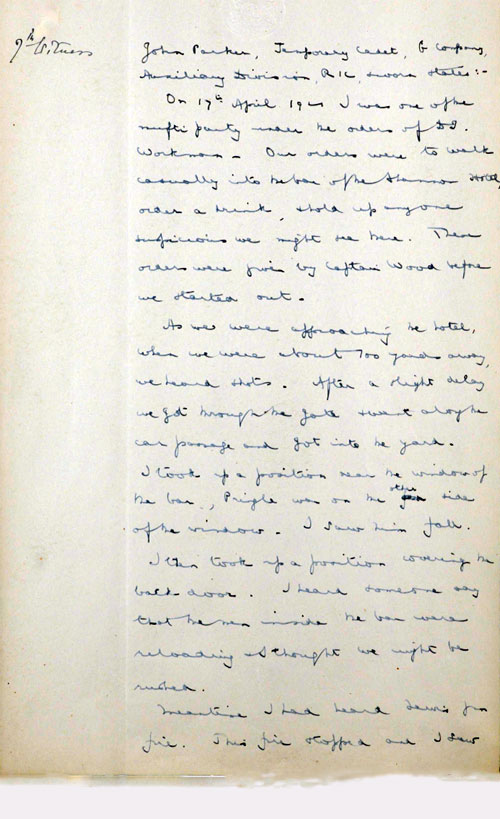 9th Witness
John Parker, Temporary Cadet, G Company,
Auxiliary Division, RIC, sworn states:-
On 17th April 1921 I was one of the
mufti party under the orders of DI.
Workman - Our orders were to walk
casually into the bar of the Shannon Hotel,
order a drink, & hold up anyone
suspicious we might see there. These
orders were given by Captain Wood before
we started out -
As we were approaching the hotel,
when we were about 100 yards away,
we heard shots. After a slight delay
we got through the gate & went along the
car passage and got into the yard.
I took up a position near the window of
the bar, Prigle was on the other side
of the window - I saw him fall.
I then took up a position covering the
back door. I heard someone say
that the men inside the bar were
reloading & I thought we might be
rushed.
Meantime I had heard Lewis gun
fire. This fire stopped and I saw